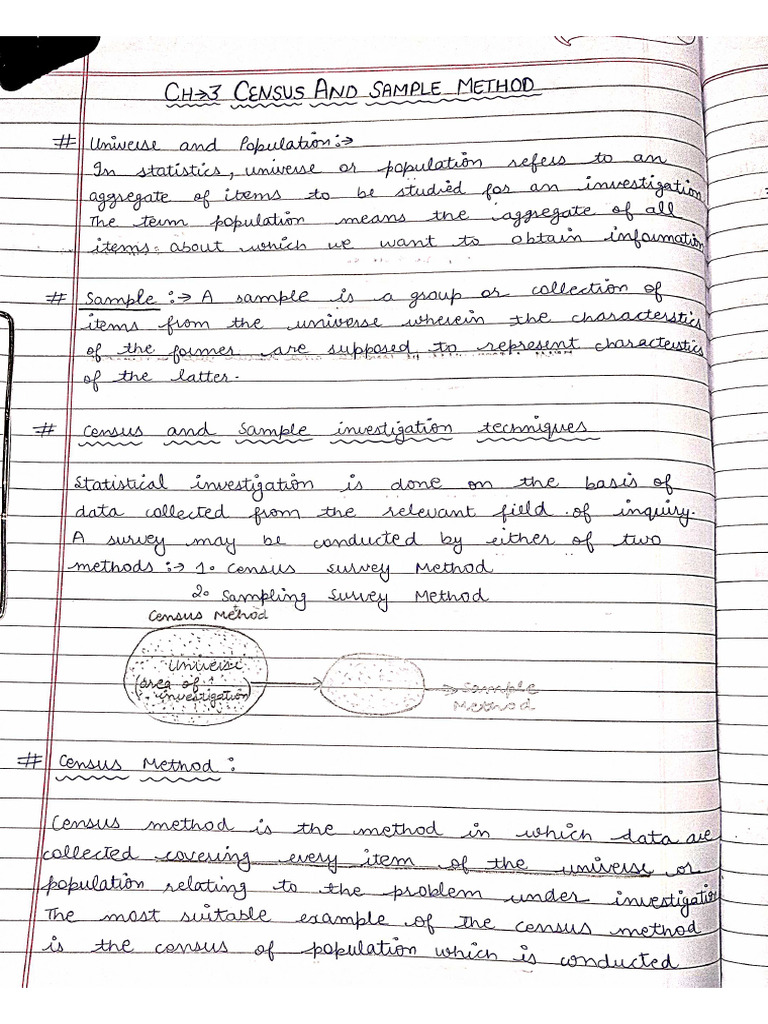 CH→3 CENSUS AND SAMPLE METHOD
# Universe and Population:→
In statistics, universe or population refers to an
aggregate of items to be studied for an investigation
The term population means the aggregate of all
items about which we want to obtain information
# Sample :→ A sample is a group or collection of
items from the universe wherein the characterstics
of the former are supposed to represent characterstics
of the latter.
# Census and Sample investigation techniques
Statistical investigation is done on the basis of
data collected from the relevant field of inquiry.
A survey may be conducted by either of two
methods :→ 1. Census survey Method
2. Sampling Survey Method
Census Method
Universe
(area of
investigation)
→ Sample
Method
# Census Method :
Census method is the method in which data are
collected covering every item of the universe or
population relating to the problem under investigation
The most suitable example of the census method
is the census of population which is conducted